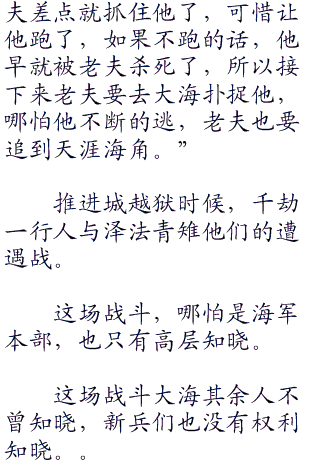 夫差点就抓住他了，可惜让
他跑了，如果不跑的话，他
早就被老夫杀死了，所以接
下来老夫要去大海扑捉他，
哪怕他不断的逃，老夫也要
追到天涯海角。”
推进城越狱时候，千劫
一行人与泽法青雉他们的遭
遇战。
这场战斗，哪怕是海军
本部，也只有高层知晓。
这场战斗大海其余人不
曾知晓，新兵们也没有权利
知晓。。